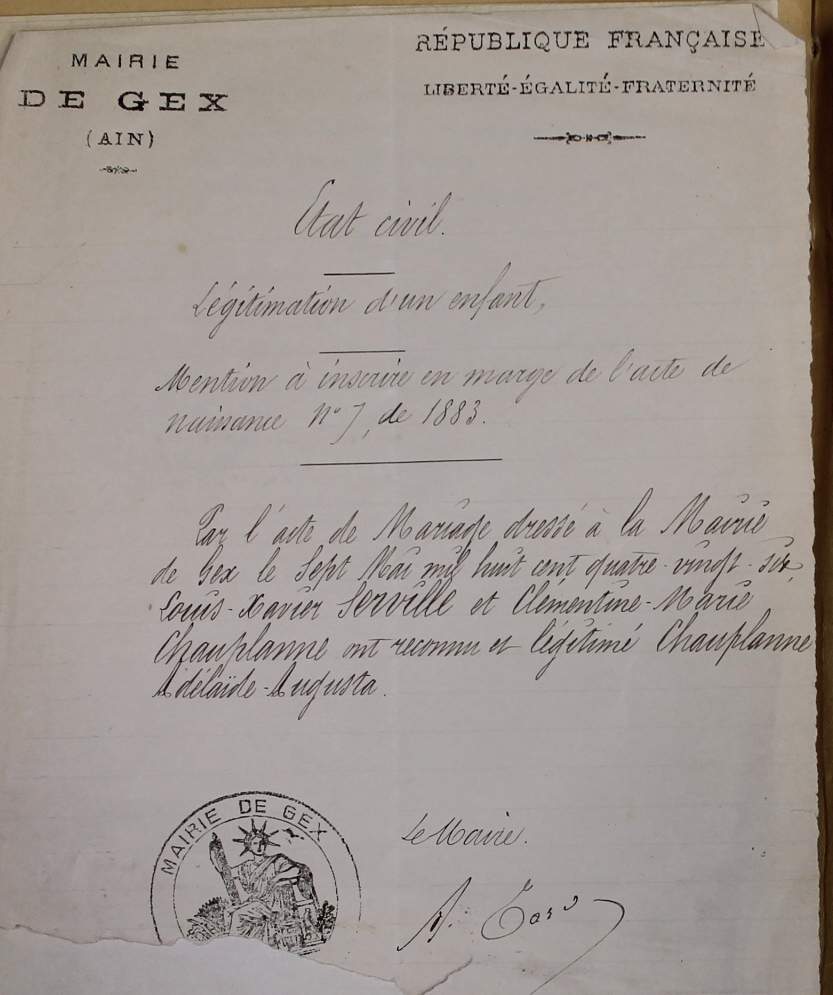 MAIRIE
DE GEX
(AIN)
RÉPUBLIQUE FRANÇAISE
LIBERTÉ-ÉGALITÉ-FRATERNITÉ
Etat civil.
Légitimation d'un enfant,
Mention à inscrire en marge de l'acte de
naissance N° 7, de 1883.
Par l'acte de Mariage dressé à la Mairie
de Gex le Sept Mai mil huit cent quatre-vingt-six,
Louis-Xavier Serville et Clémentine-Marie
Chauplanne ont reconnu et légitimé Chauplanne
Adélaïde-Augusta.
MAIRIE DE GEX
Le Maire.
A.